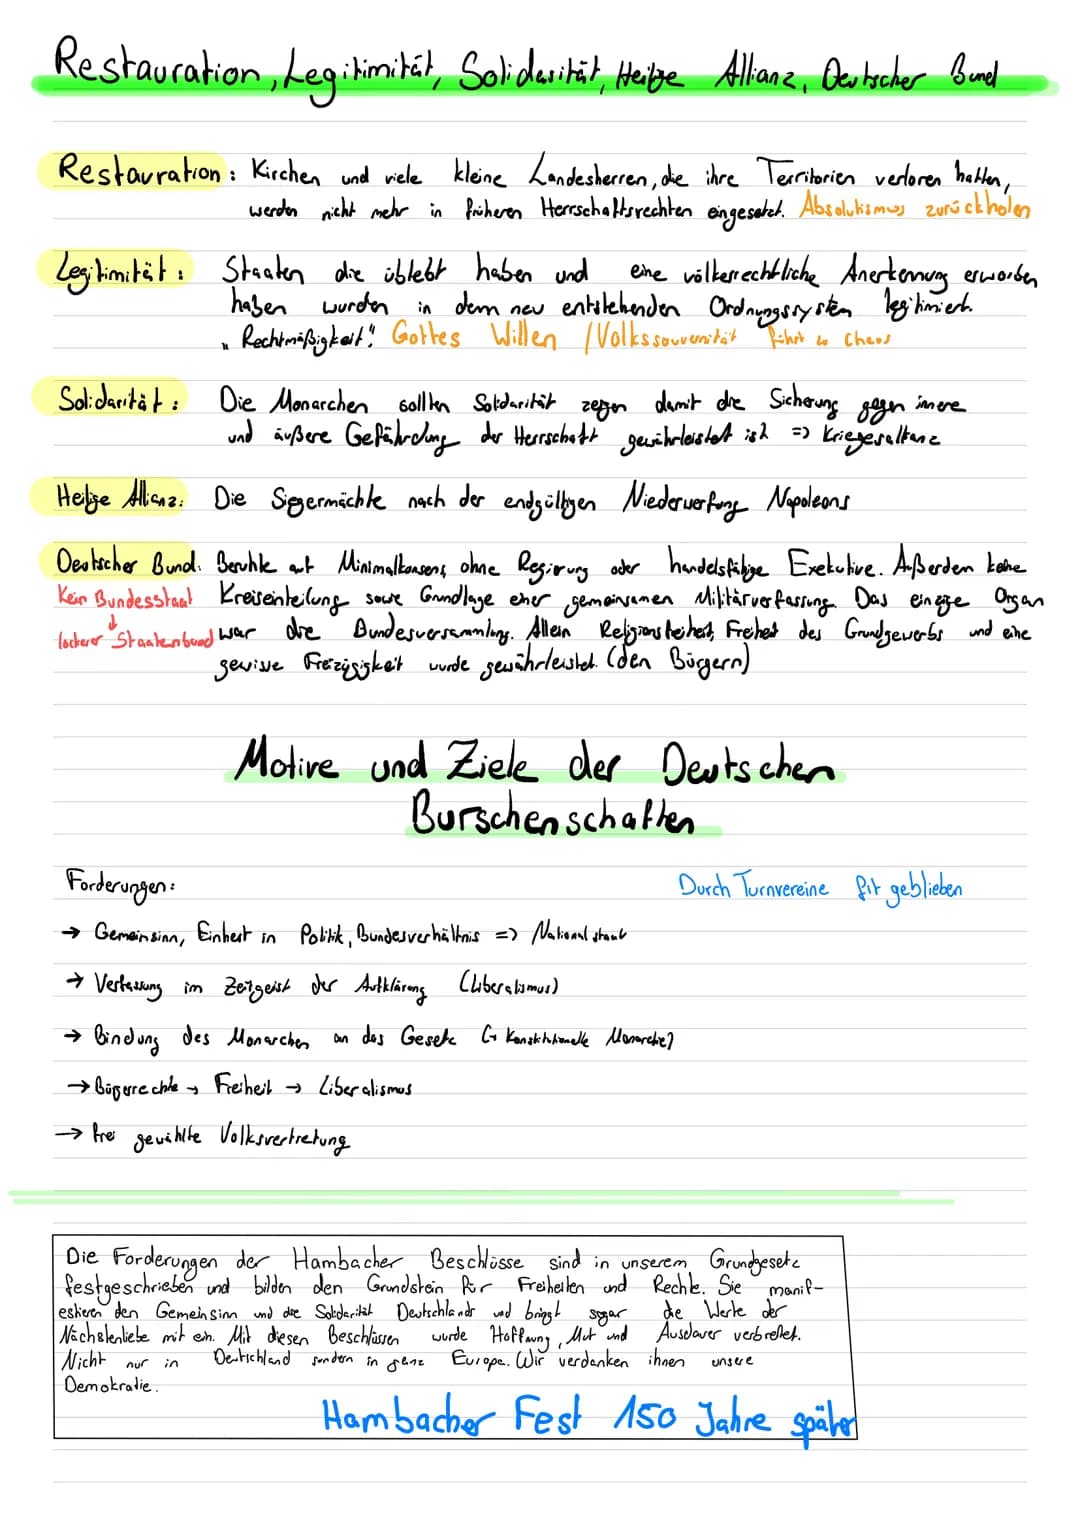 Restauration, Legitimität, Solidarität, Heilige Allianz, Deutscher Bund
Restauration: Kirchen und viele kleine Landesherren, die ihre Territorien verloren hatten,
werden nicht mehr in früheren Herrschaftsrechten eingesetzt. Absolutismus zurückholen
Legitimität: Staaten die überlebt haben und eine völkerrechtliche Anerkennung erworben
haben wurden in dem neu entstehenden Ordnungssystem legitimiert.
"Rechtmäßigkeit" Gottes Willen / Volkssouvernität führt zu Chaos
Solidarität: Die Monarchen sollten Solidarität zeigen damit die Sicherung gegen innere
und äußere Gefährdung der Herrschaft gewährleistet ist =>
Heilige Allianz: Die Siegermächte nach der endgültigen Niederwerfung Napoleons
Deutscher Bund: Beruhte auf Minimalkonsens, ohne Regierung oder handelsfähige Exekutive. Außerdem keine
Kein Bundesstaat Kreiseinteilung sowie Grundlage einer gemeinsamen Militärverfassung. Das einzige Organ
↓
lockerer Staatenbund war die Bundesversammlung. Allein Religionsfreiheit, Freiheit des Grundgewerbs und eine
gewisse Freizügigkeit wurde gewährleistet. (den Bürgern)
Motive und Ziele der Deutschen
Burschenschaften
Forderungen:
Durch Turnvereine fit geblieben
→ Gemeinsinn, Einheit in Politik, Bundesverhältnis => Nationalstaat
→ Verfassung im Zeitgeist der Aufklärung (Liberalismus)
→ Bindung des Monarchen an das Gesetz (→ Konstitutionelle Monarchie)
→ Bürgerrechte → Freiheit → Liberalismus
→ frei gewählte Volksvertretung
Die Forderungen der Hambacher Beschlüsse sind in unserem Grundgesetz
festgeschrieben und bilden den Grundstein für Freiheiten und Rechte. Sie manif-
estieren den Gemeinsinn und die Solidarität Deutschlands und bringt sogar die Werte der
Nächstenliebe mit ein. Mit diesen Beschlüssen wurde Hoffnung, Mut und Ausdauer verbreitet.
Nicht nur in Deutschland sondern in ganz Europa. Wir verdanken ihnen unsere
Demokratie.
Hambacher Fest 150 Jahre später